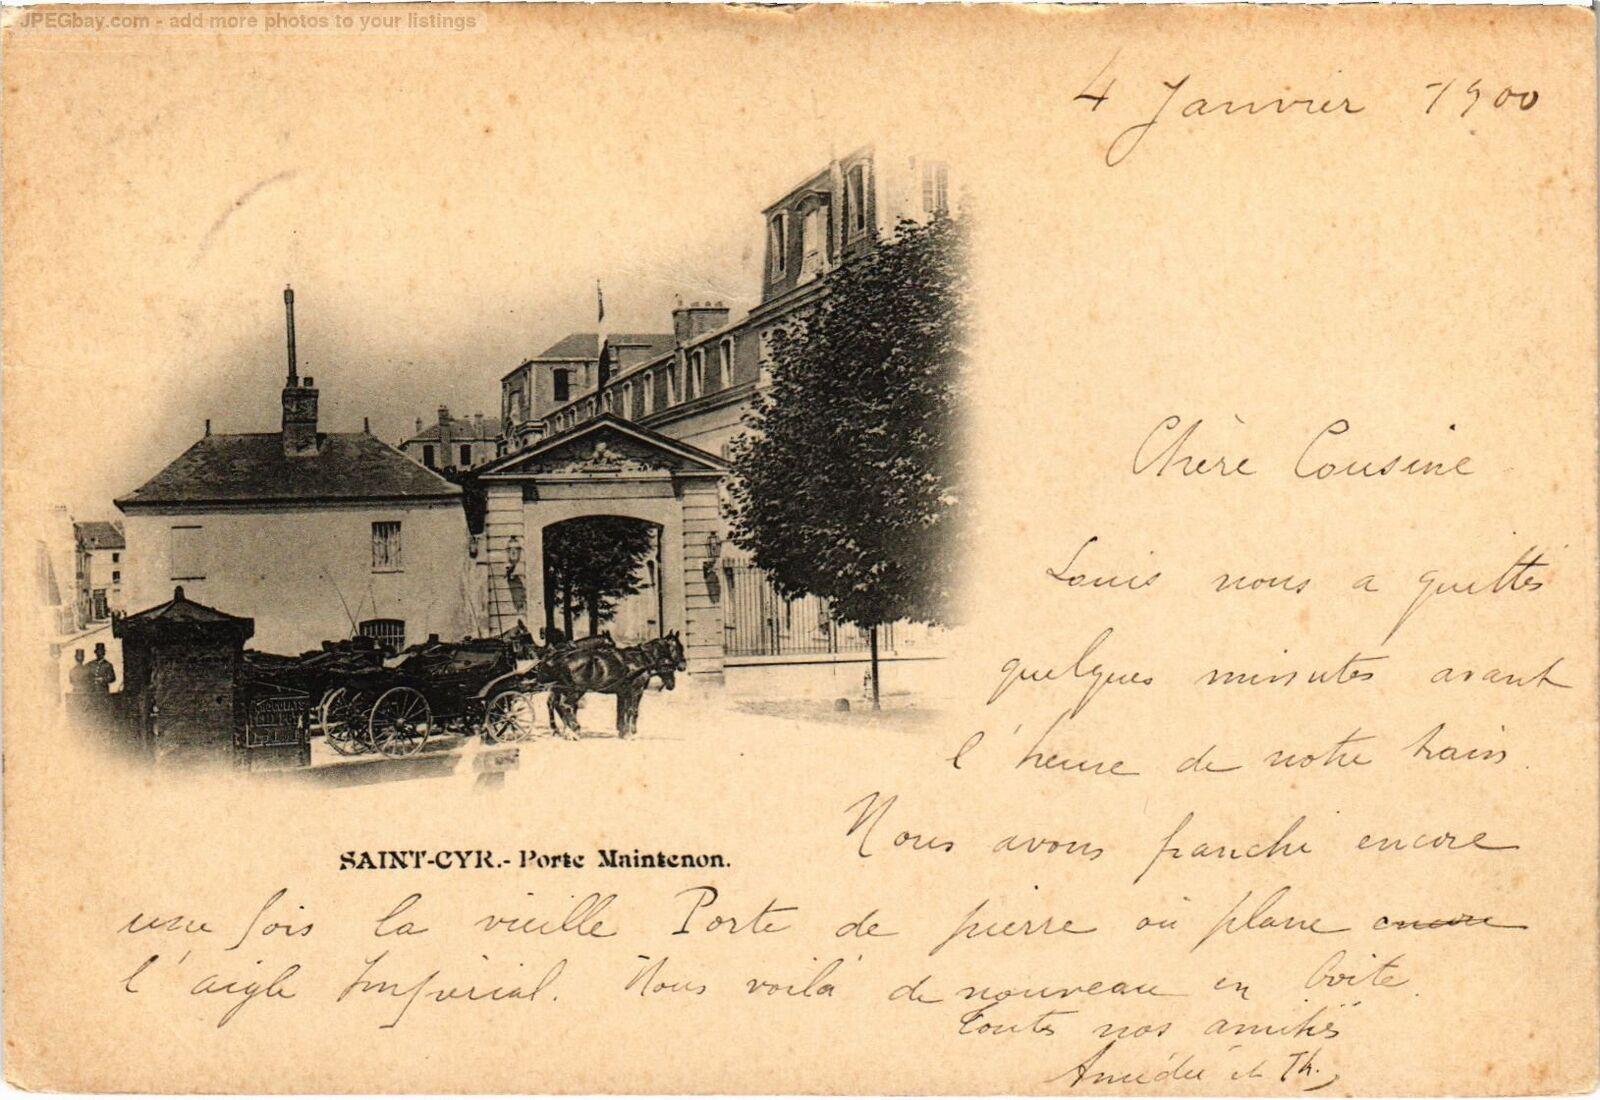 JPEGbay.com - add more photos to your listings
4 Janvier 1900
Chère Cousine
Louis nous a quittés
quelques minutes avant
l'heure de notre train.
Nous avons franchi encore
une fois la vieille Porte de pierre où plane encore
l'aigle Impérial. Nous voilà de nouveau en boîte.
Toutes nos amitiés
Amédée et Th.
SAINT-CYR.- Porte Maintenon.
CHOCOLATS